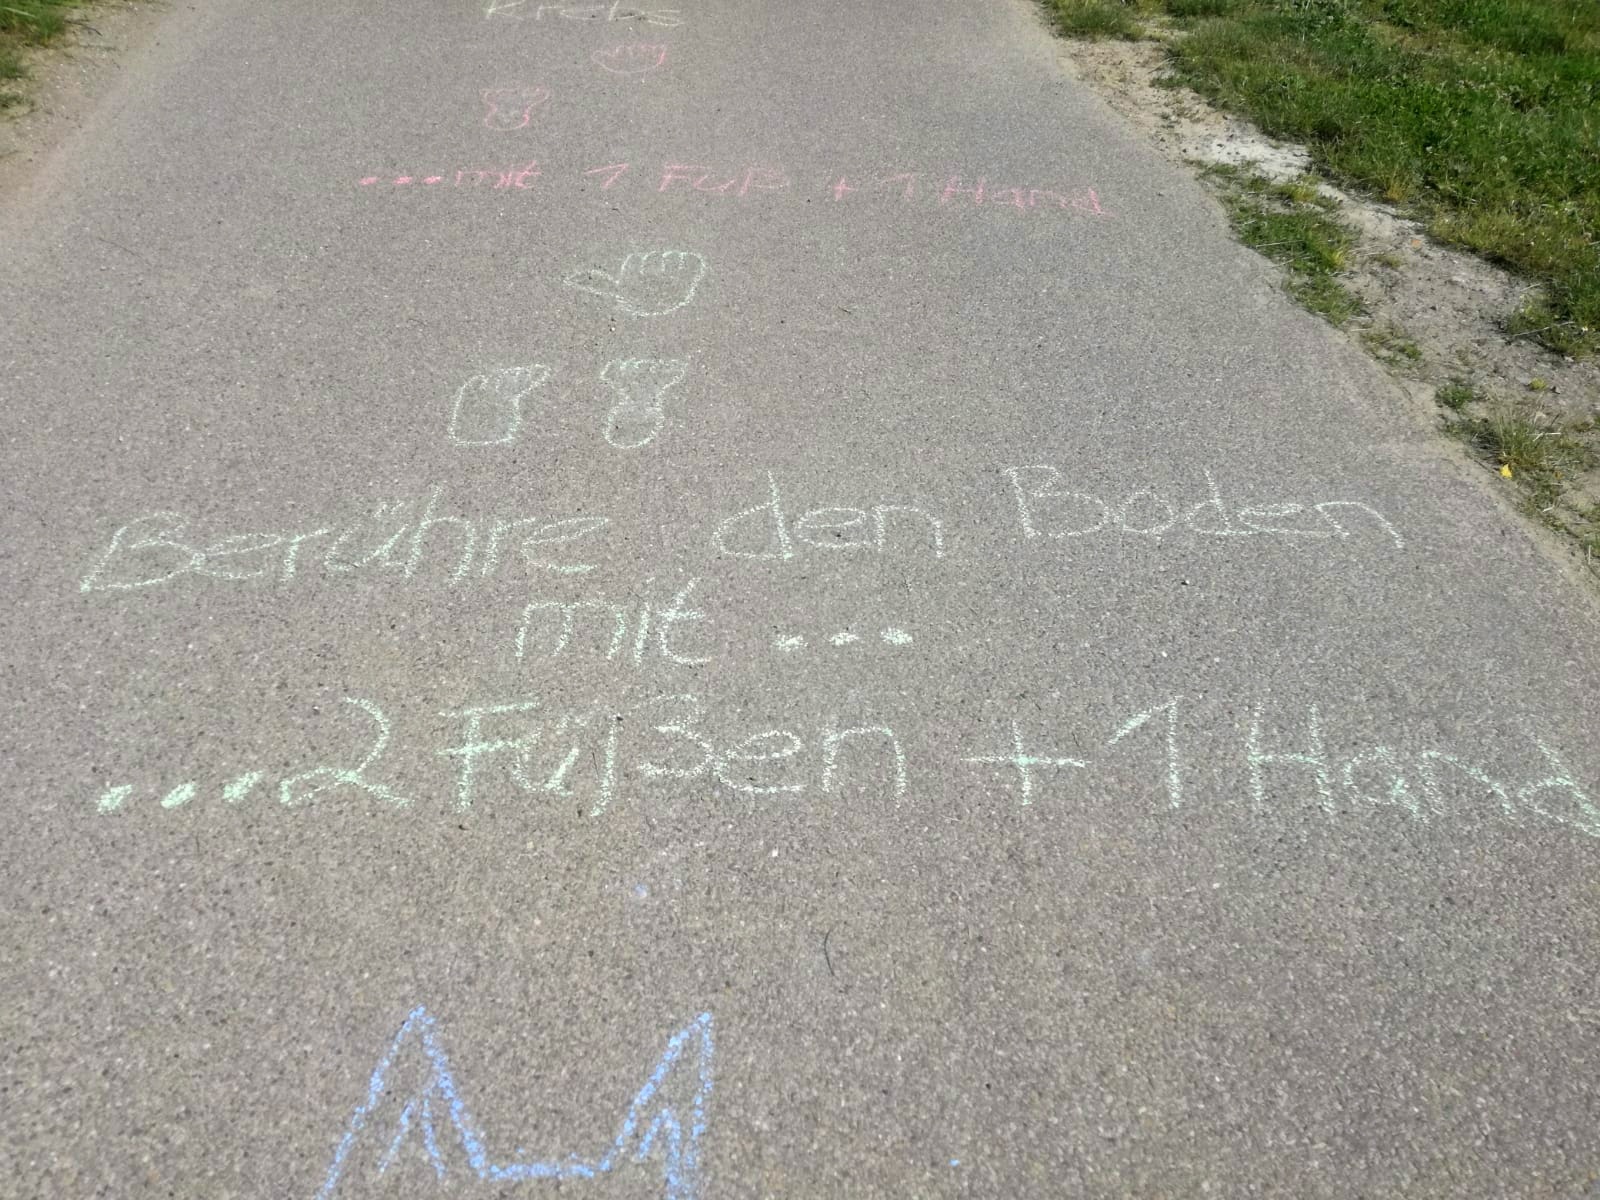 Krebs
....mit 1 Fuß + 1 Hand
Berühre den Boden
mit ...
....2 Füßen + 1 Hand